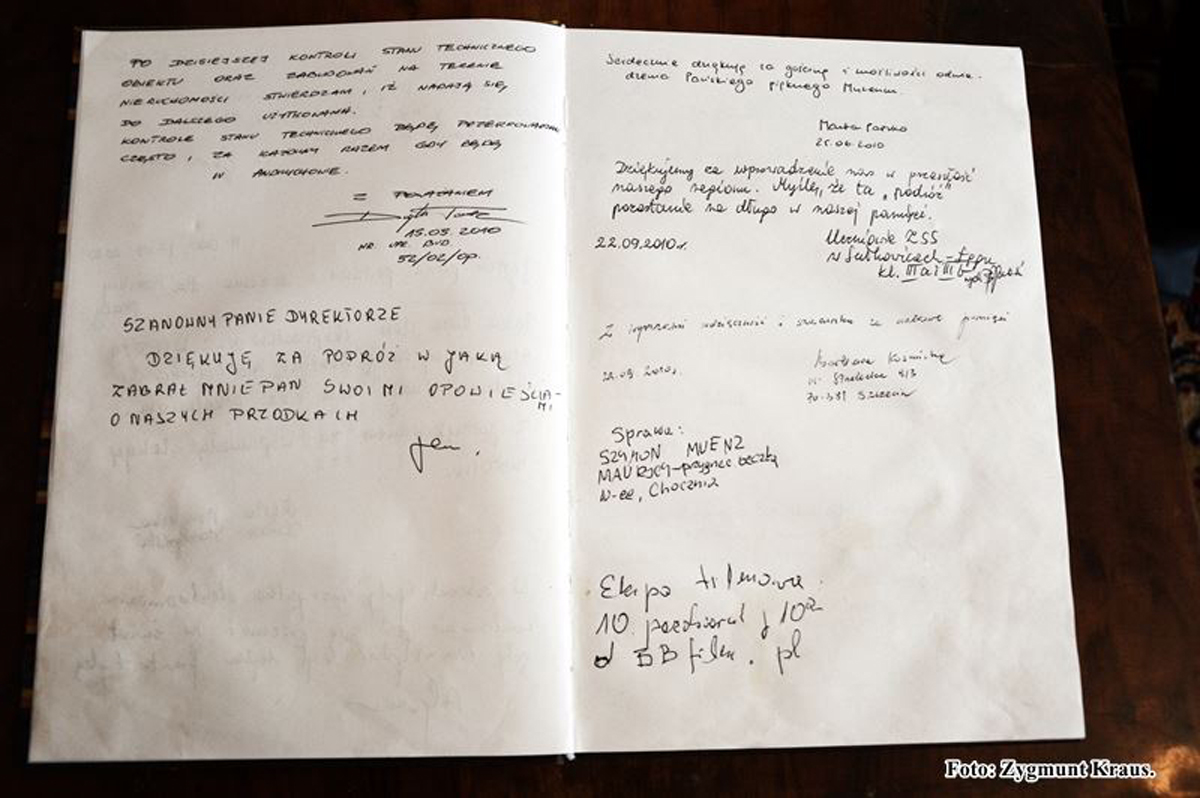 PO DZISIEJSZEJ KONTROLI STANU TECHNICZNEGO
OBIEKTU ORAZ ZABUDOWAŃ NA TERENIE
NIERUCHOMOŚCI STWIERDZAM, IŻ NADAJĄ SIĘ
DO DALSZEGO UŻYTKOWANIA.
KONTROLE STANU TECHNICZNEGO BĘDĘ
CZĘSTO, ZA KAŻDYM RAZEM GDY BĘDĘ
W ANDRYCHOWIE.
Z POWAŻANIEM
15.09.2010
NR. UPR. BUD.
52/02/OP.
SZANOWNY PANIE DYREKTORZE
DZIĘKUJĘ ZA PODRÓŻ W JAKĄ
ZABRAŁ MNIE PAN SWOIMI OPOWIEŚCIA-
MI
O NASZYCH PRZODKACH
Serdecznie dziękuję za gościnę i możliwość odwie-
dzenia Pańskiego pięknego Muzeum.
Marta
25.06.2010
Dziękujemy za wprowadzenie nas w przeszłość
naszego regionu. Myślę, że ta "podróż"
pozostanie na długo w naszej pamięci.
22.09.2010r.
Uczniowie ZSS
w Sułkowicach-Łęgu
kl. III a i III b
Z wyrazami wdzięczności i szacunku za
2010r.
Barbara
Szczecin
Sprawa:
SZYMON MUENZ
MAURYCY-przygniec beczką
W-ce, Chocznia
Ekipa filmowa
10 październik
BBfilm.pl
Foto: Zygmunt Kraus.